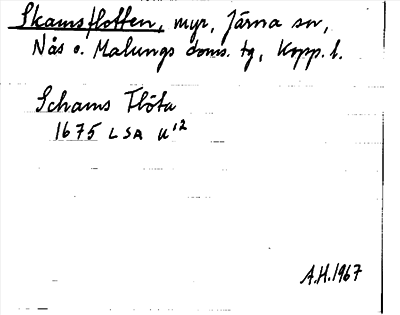 Skamsflotten, myr, Järna sn,
Nås o. Malungs doms. tg, Kopp. l.
Schams Flöta
1675 LSA U12
A.H. 1967